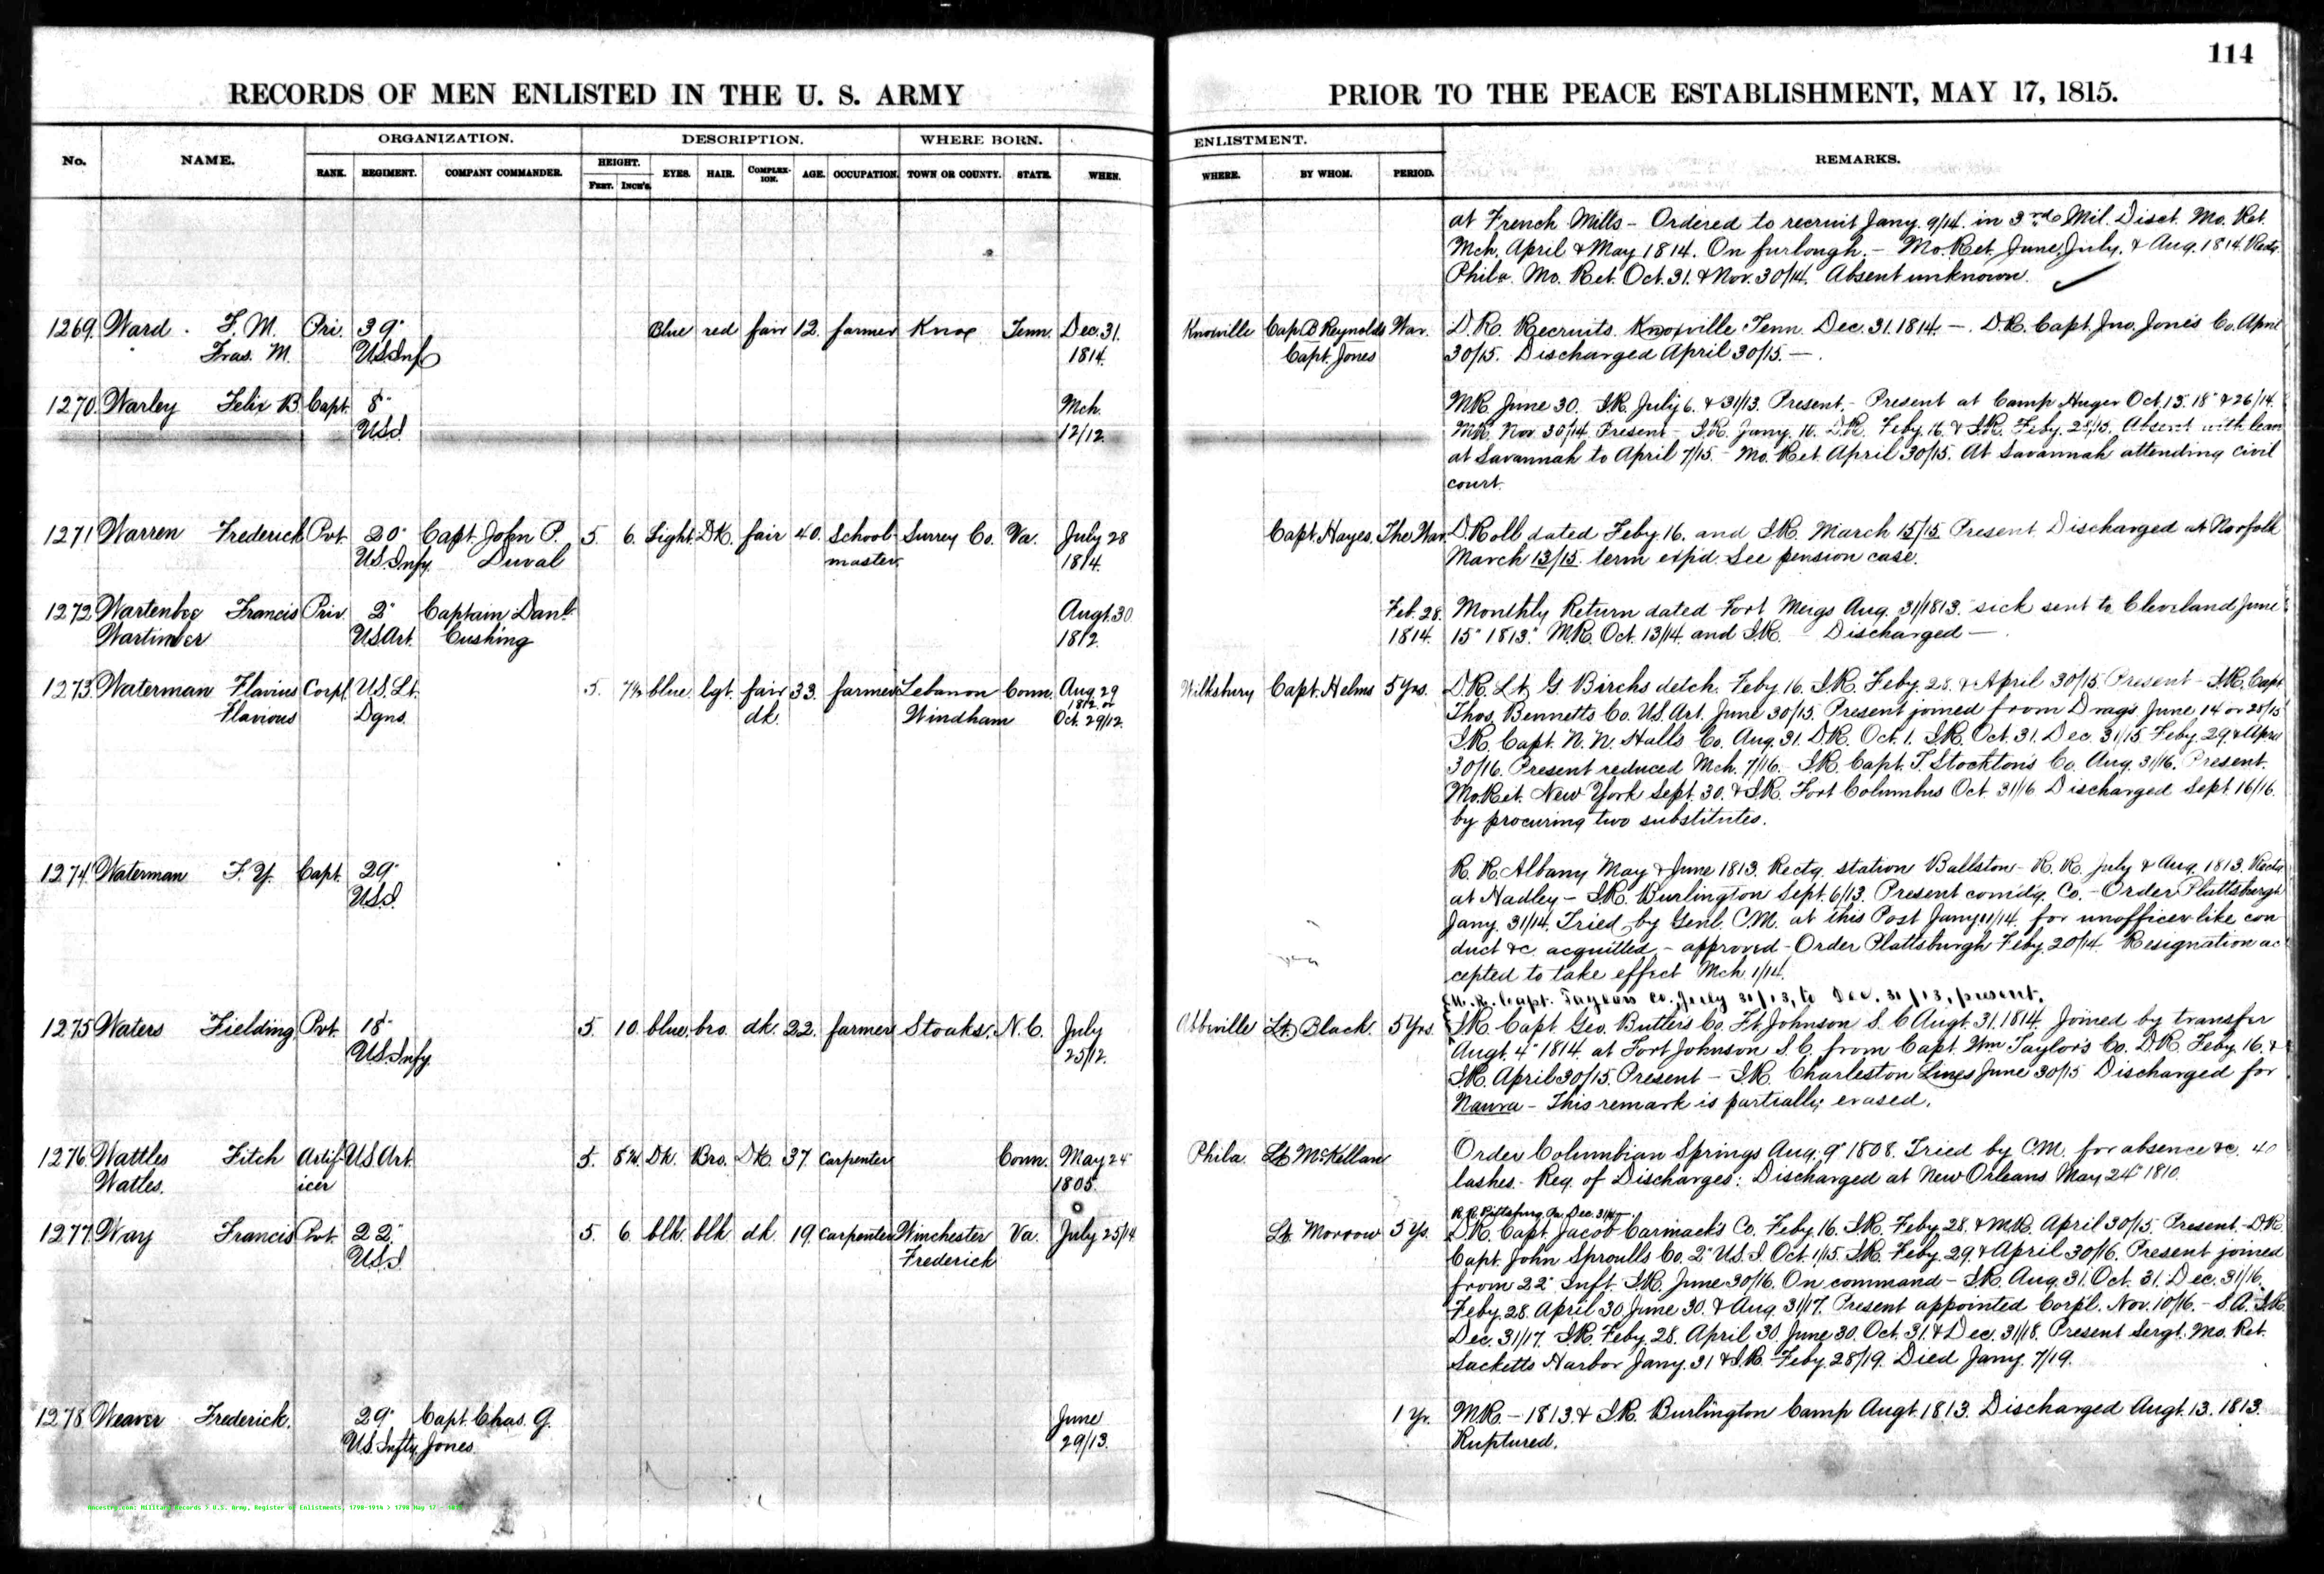 114
RECORDS OF MEN ENLISTED IN THE U. S. ARMY
PRIOR TO THE PEACE ESTABLISHMENT, MAY 17, 1815.
No. NAME. ORGANIZATION. DESCRIPTION. WHERE BORN. ENLISTMENT. REMARKS.
RANK. REGIMENT. COMPANY COMMANDER. HEIGHT. FEET. INCH'S. EYES. HAIR. COMPLEXION. AGE. OCCUPATION. TOWN OR COUNTY. STATE. WHEN. WHERE. BY WHOM. PERIOD.
at French Mills - Ordered to recruit Jany. 9/14. in 3rd Mil. Disct. Mo. Ret.
Mch. April & May 1814. On furlough. - Mo. Ret. June, July, & Aug. 1814. Rectg.
Phila. Mo. Ret. Oct. 31. & Nov. 30/14. Absent unknown.
1269. Ward. F. M. Pri. 39" Blue red fair 12. farmer Knox Tenn. Dec. 31. Knoxville Cap. B Reynolds War. D.R. Recruits. Knoxville Tenn. Dec. 31. 1814. -. D.R. Capt. Jno. Jones Co. April
Fras. M. US. Inf 1814. Capt. Jones 30/15. Discharged April 30/15. -.
1270. Warley Felix B. Capt. 8" Mch. MR. June 30. I.R. July 6. & 31/13. Present. - Present at Camp Huger Oct. 13. 18" & 26/14.
US.I. 12/12. MR. Nov. 30/14. Present - I.R. Jany. 16. D.R. Feby. 16. & I.R. Feby. 28/15. Absent with leave
at Savannah to April 7/15. - Mo. Ret. April 30/15. At Savannah attending civil
court.
1271 Warren Frederick Pvt. 20" Capt. John P. 5 6. Light. DK. fair 40. School- Surrey Co. Va. July 28 Capt. Hayes. The War. D. Roll dated Feby. 16. and I.R. March 15/15. Present. Discharged at Norfolk
US. Infy. Duval master. 1814. March 13/15. term exp'd. See pension case.
1272. Wartenbee Francis Priv. 2" Captain Danl. Augt. 30 Feb. 28. Monthly Return dated Fort Meigs Aug. 31/1813. sick sent to Cleveland June
Wartimber US Art. Cushing 1812. 1814. 15" 1813". M.R. Oct. 13/14. and I.R. Discharged -
1273. Waterman Flavius Corpl. U.S. Lt. 5. 7½ blue. lgt. fair 33. farmer Lebanon Conn. Aug. 29 Wilksbury Capt. Helms 5 yrs. D.R. Lt. G. Birchs detch. Feby. 16. I.R. Feby. 28. & April 30/15. Present - I.R. Capt
Flavious Dgns. dk. Windham 1812. or Oct. 29/12. Thos. Bennetts Co. US. Art. June 30/15. Present joined from Drags. June 14 or 28/15
I.R. Capt. N. N. Halls Co. Aug. 31. D.R. Oct. 1. I.R. Oct. 31. Dec. 31/15. Feby. 29. & April
30/16. Present reduced Mch. 7/16. - I.R. Capt. T. Stocktons Co. Aug. 31/16. Present.
Mo. Ret. New York Sept. 30. & I.R. Fort Columbus Oct. 31/16 Discharged Sept. 16/16.
by procuring two substitutes.
1274. Waterman F. Y. Capt. 29" R. R. Albany May & June 1813. Rectg. station Ballston - R. R. July & Aug. 1813. Rectg
US.I. at Hadley - I.R. Burlington Sept. 6/13. Present comdg. Co. - Order Plattsburgh
Jany. 31/14. Tried by Genl. C.M. at this Post Jany 11/14. for unofficer like con
duct &c. acquitted, - approved - Order Plattsburgh Feby. 20/14. Resignation ac
cepted to take effect Mch. 1/14.
M.R. Capt. Taylors Co. July 31/13, to Dec. 31/13, present.
1275 Waters Fielding. Pvt. 18" 5. 10. blue. bro. dk. 22. farmer Stoaks. N. C. July Abbiville Lt. Black. 5 Yrs. I.R. Capt. Geo. Butlers Co. Ft. Johnson S. C Augt. 31. 1814. Joined by transfer
US. Infy. 25/12. Augt. 4" 1814. at Fort Johnson S. C. from Capt. Wm Taylor's Co. D.R. Feby. 16. &
I.R. April 30/15. Present - I.R. Charleston Lines June 30/15 Discharged for
- This remark is partially erased.
1276. Wattles Fitch Artif- US. Art. 5. 8¼. Dk. Bro. DK. 37. carpenter Conn. May 24" Phila. Lt. McKellan Order Columbian Springs Aug. 9" 1808. Tried by C.M. for absence &c. 40
Watles. icer 1805. lashes. - Reg. of Discharges: Discharged at New Orleans May 24" 1810.
R.R. Pittsburg Pa. Dec. 31/14 -.
1277. Way Francis Pvt. 22." 5. 6. blk. blk. dk. 19. carpenter Winchester Va. July 25/14 Lt. Morrow 5 Ys. D.R. Capt. Jacob Carmack's Co. Feby. 16. I.R. Feby. 28. & M.R. April 30/15. Present. - D.R.
US.I Frederick Capt. John Sproulls Co. 2" U.S. I. Oct. 1/15. I.R. Feby. 29 & April 30/16. Present joined
from 22" Inft. I.R. June 30/16. On command - I.R. Aug. 31. Oct. 31. Dec. 31/16.
Feby. 28. April 30. June 30. & Aug. 31/17. Present appointed Corpl. Nov. 10/16. - S.A. I.R.
Dec. 31/17. I.R. Feby. 28. April 30. June 30. Oct. 31. & Dec. 31/18. Present Sergt. Mo. Ret.
Sacketts Harbor Jany. 31 & I.R. Feby. 28/19. Died Jany. 7/19.
1278 Weaver Frederick. 29" Capt. Chas. G. June 1 Yr. M.R. - 1813. & I.R. Burlington Camp Augt. 1813. Discharged Augt. 13. 1813.
US. Infty. Jones. 29/13. Ruptured.
Ancestry.com: Military Records > U.S. Army, Register of Enlistments, 1798-1914 > 1798 May 17 - 1815